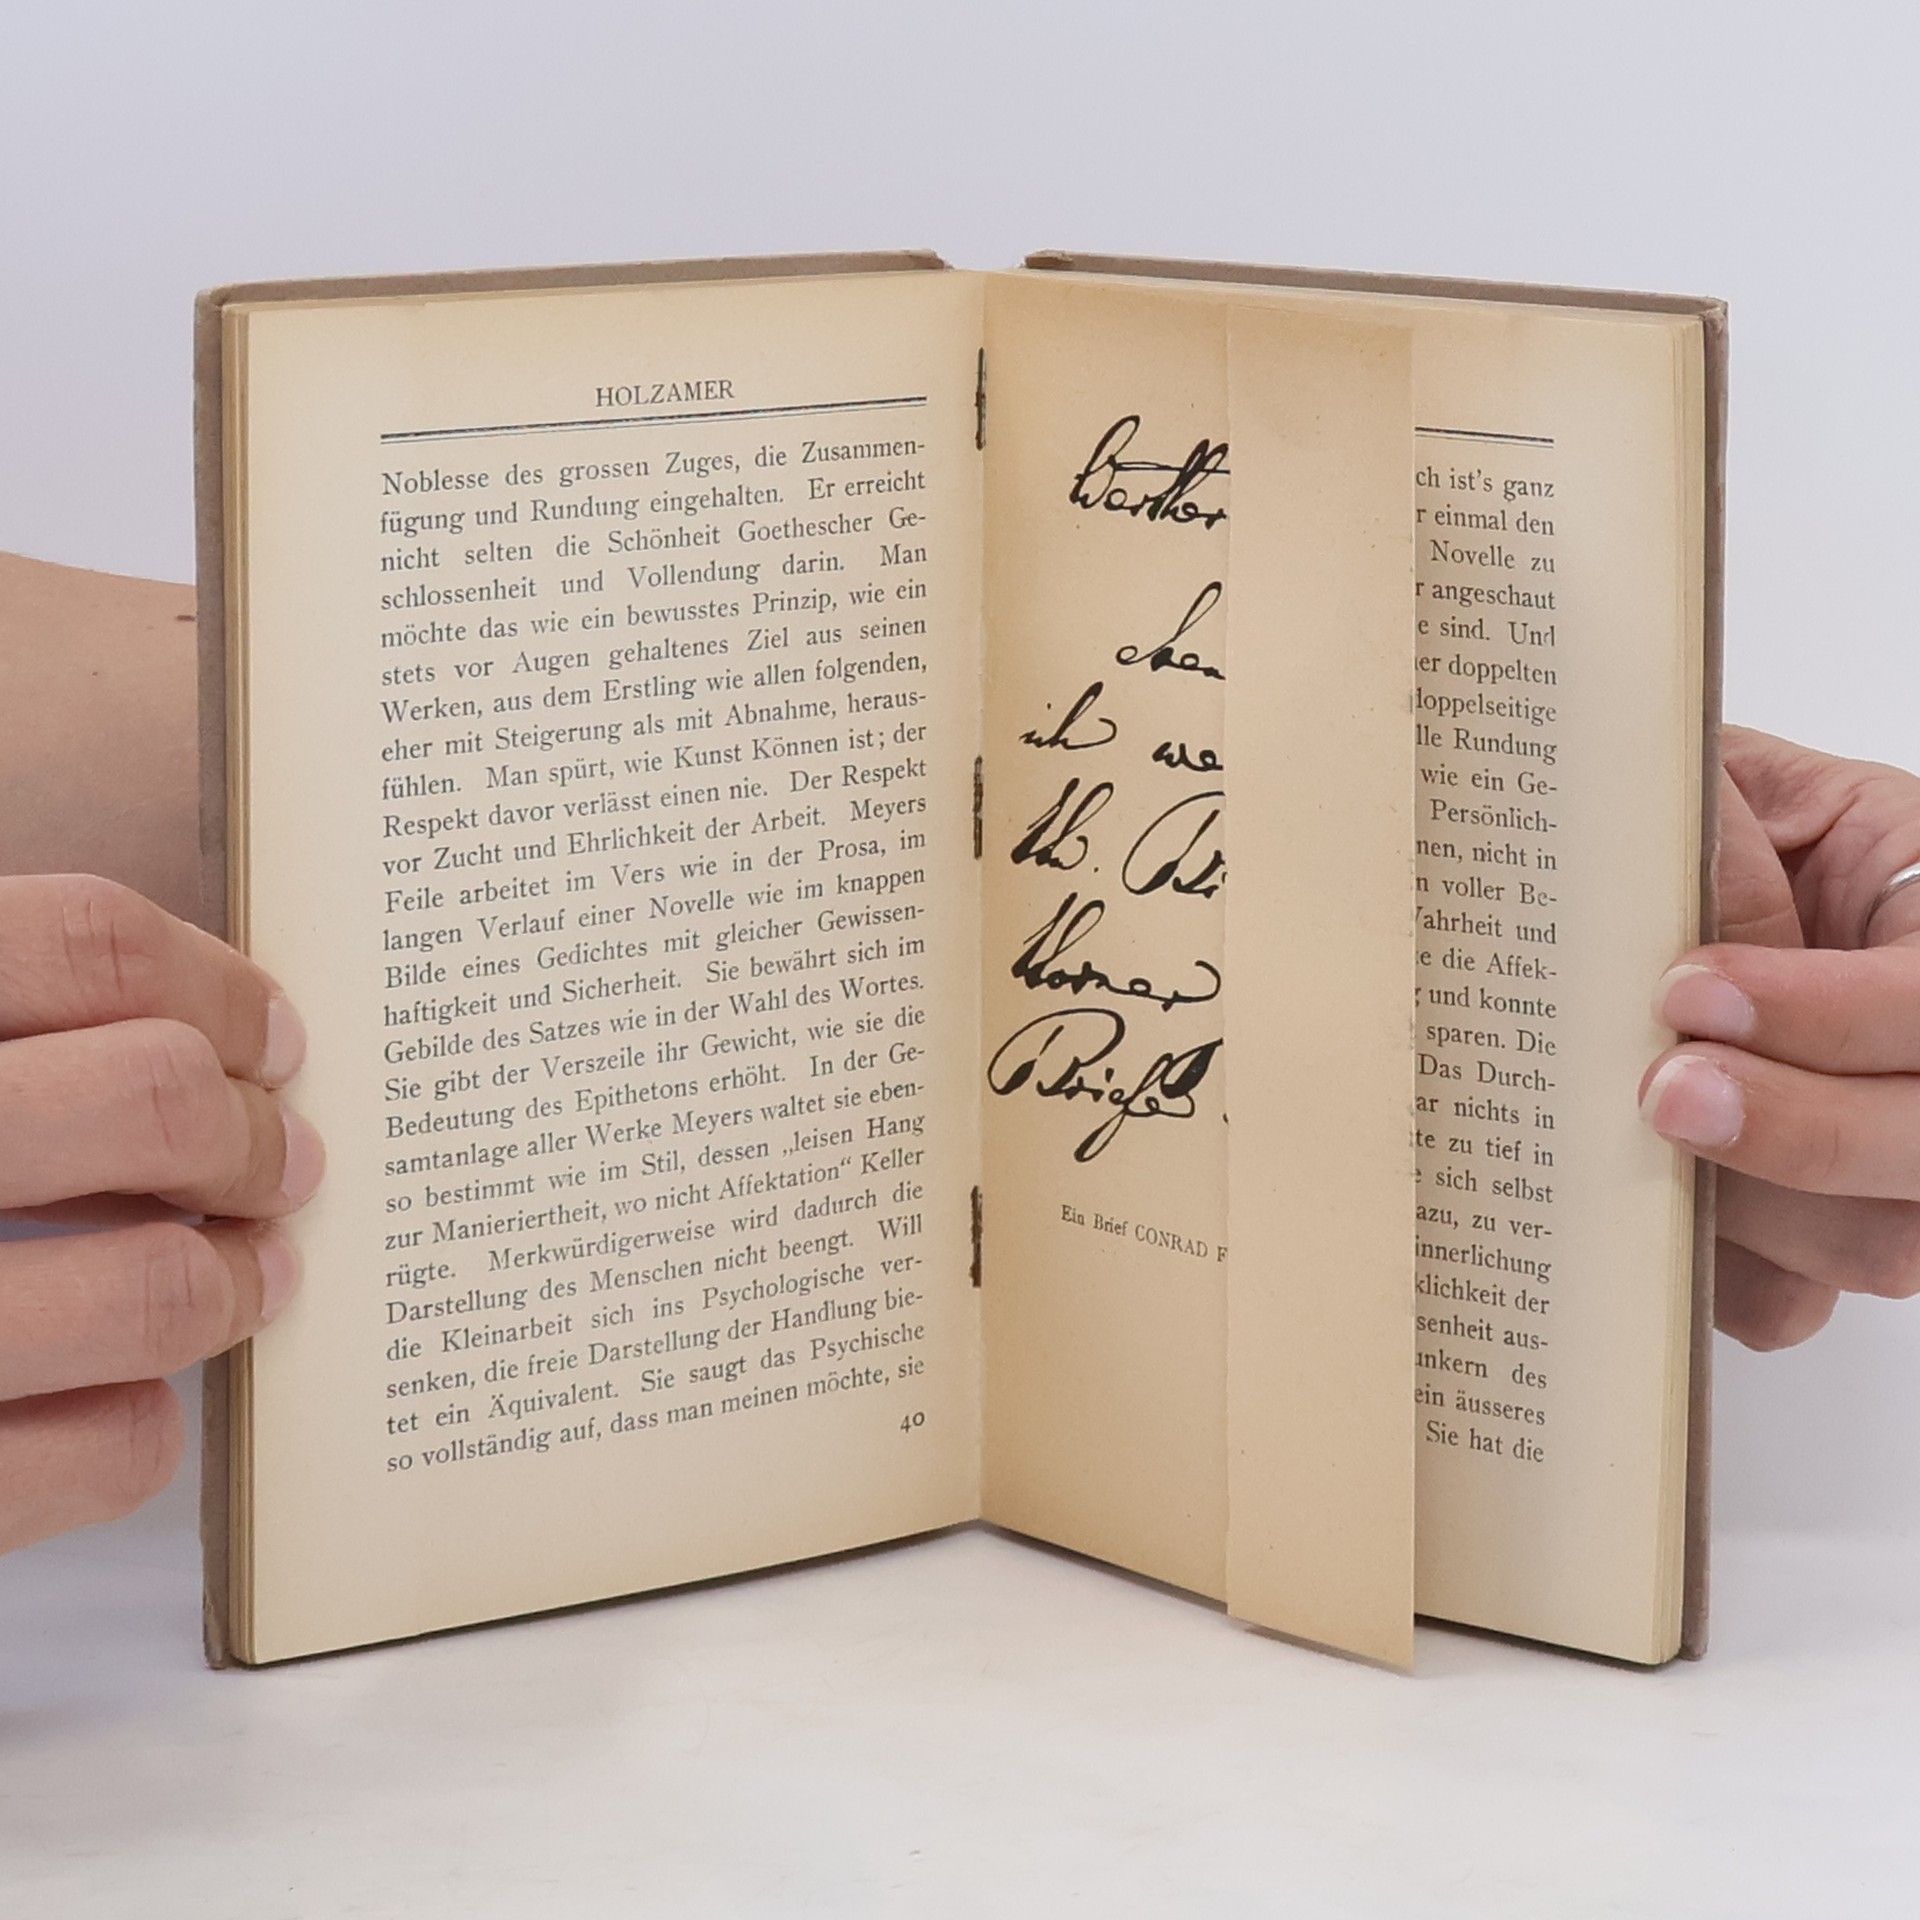 HOLZAMER
Noblesse des grossen Zuges, die Zusammen-
fügung und Rundung eingehalten. Er erreicht
nicht selten die Schönheit Goethescher Ge-
schlossenheit und Vollendung darin. Man
möchte das wie ein bewusstes Prinzip, wie ein
stets vor Augen gehaltenes Ziel aus seinen
Werken, aus dem Erstling wie allen folgenden,
eher mit Steigerung als mit Abnahme, heraus-
fühlen. Man spürt, wie Kunst Können ist; der
Respekt davor verlässt einen nie. Der Respekt
vor Zucht und Ehrlichkeit der Arbeit. Meyers
Feile arbeitet im Vers wie in der Prosa, im
langen Verlauf einer Novelle wie im knappen
Bilde eines Gedichtes mit gleicher Gewissen-
haftigkeit und Sicherheit. Sie bewährt sich im
Gebilde des Satzes wie in der Wahl des Wortes.
Sie gibt der Verszeile ihr Gewicht, wie sie die
Bedeutung des Epithetons erhöht. In der Ge-
samtanlage aller Werke Meyers waltet sie eben-
so bestimmt wie im Stil, dessen „leisen Hang
zur Manieriertheit, wo nicht Affektation“ Keller
rügte. Merkwürdigerweise wird dadurch die
Darstellung des Menschen nicht beengt. Will
die Kleinarbeit sich ins Psychologische ver-
senken, die freie Darstellung der Handlung bie-
tet ein Äquivalent. Sie saugt das Psychische
so vollständig auf, dass man meinen möchte, sie
40
Werther
ich
Briefe
Ein Brief CONRAD F
ch ist's ganz
r einmal den
Novelle zu
r angeschaut
e sind. Und
er doppelten
doppelseitige
lle Rundung
wie ein Ge-
Persönlich-
nen, nicht in
n voller Be-
Wahrheit und
e die Affek-
g und konnte
sparen. Die
Das Durch-
ar nichts in
te zu tief in
e sich selbst
azu, zu ver-
innerlichung
klichkeit der
senheit aus-
unkern des
ein äusseres
Sie hat die